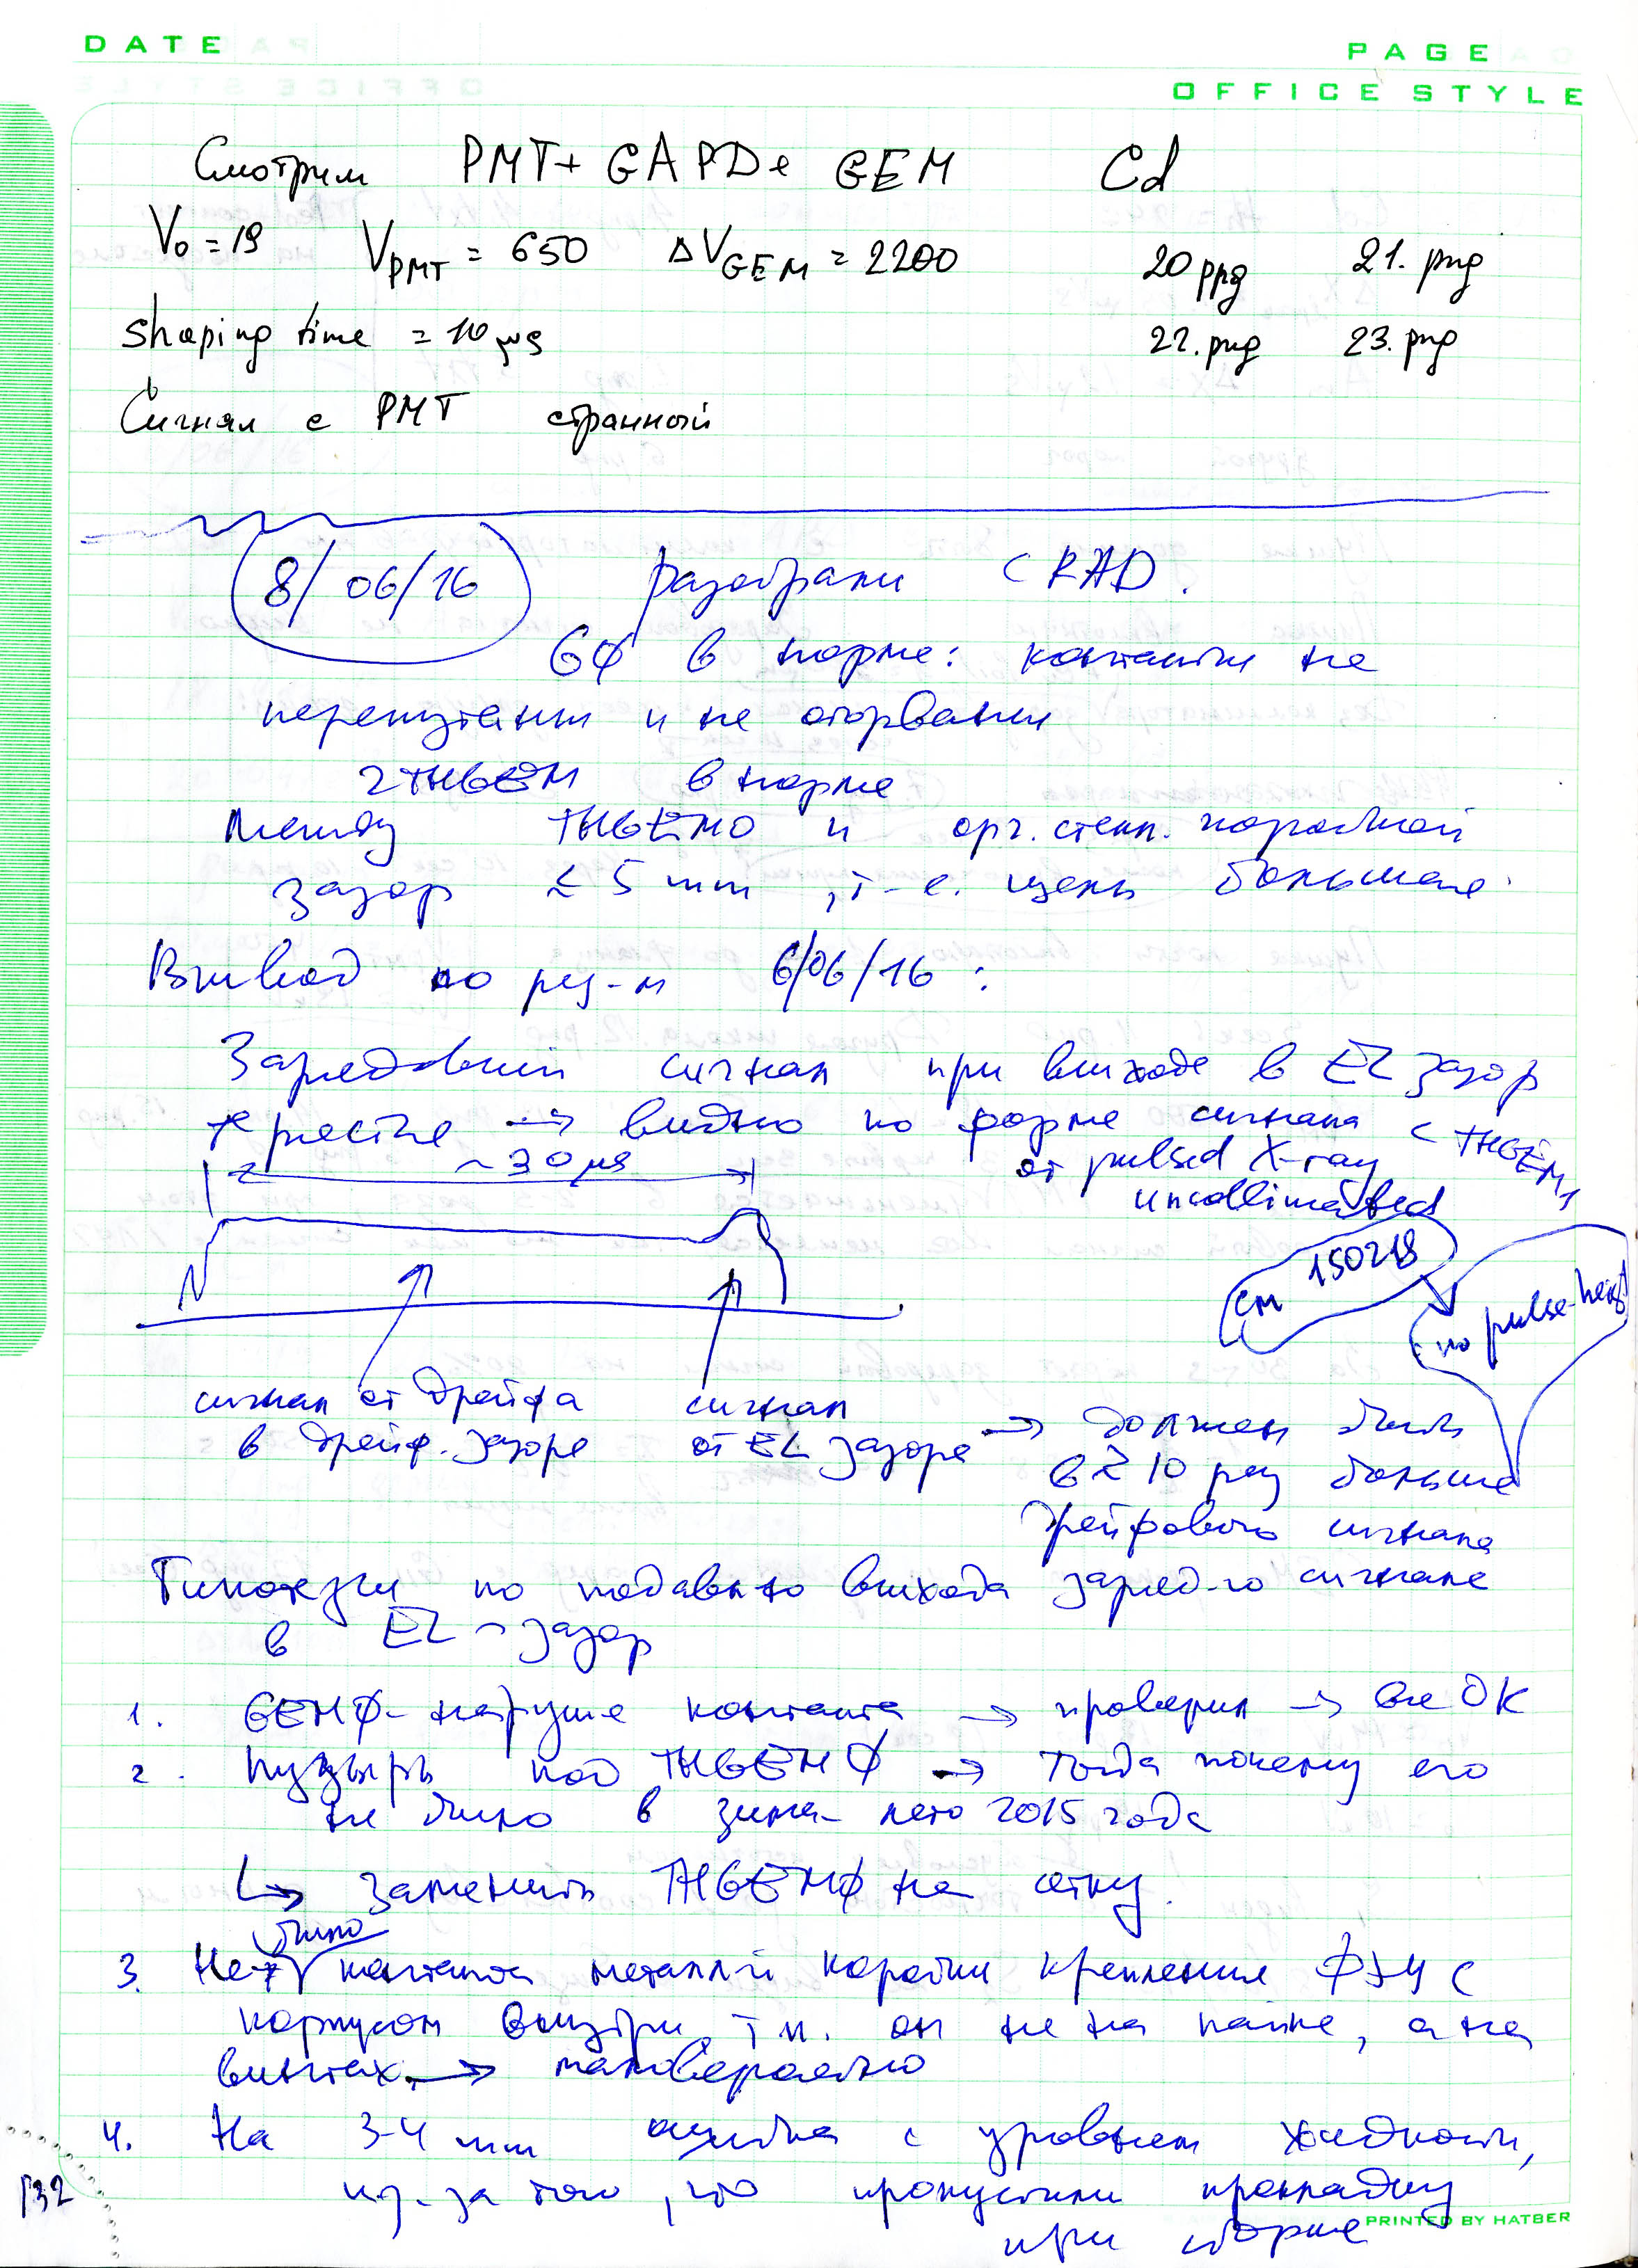 DATE
PAGE
OFFICE STYLE
Смотрим PMT+ GAPD+ GEM Cd
V0 = 19 VPMT = 650 ΔVGEM = 2200 20 png 21. png
shaping time = 10 μs 22. png 23. png
Сигнал с PMT странный
8/06/16 Разобрали CRAD.
GΦ в норме: контакты не
перепутаны и не оторваны
2THGEM в норме
Между THGEM0 и орг. стекл. коробкой
зазор ≤ 5 mm, т-е. щель большая.
Вывод по рез-м 6/06/16 :
Зарядовый сигнал при выходе в EL зазор
→ видно по форме сигнала с THGEM1
от pulsed X-ray
uncollimated
~30 μs
см 150218
по pulse-height
сигнал от дрейфа
в дрейф. зазоре
сигнал
от EL зазора → должен быть
в ≥ 10 раз больше
дрейфового сигнала
Гипотезы по подавл-ю выхода заряд-го сигнала
в EL-зазор
1. GEMΦ- контакта → проверил → все ОК
2. Пузырь под THGEMΦ → тогда почему его
не было в зима-лето 2015 года
↳ заменить THGEMΦ на сетку.
3. Не было контакта металл-й коробки крепления ФЭУ с
корпусом внутри, т.к. он не на пайке, а на
винтах → маловероятно
4. На 3-4 mm ошибка с уровнем жидкости,
из-за того, что пропустили прокладку
при сборке
132
PRINTED BY HATBER